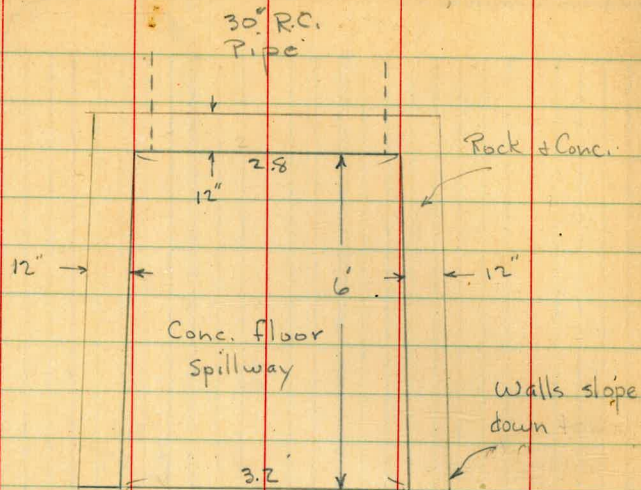 30" R.C.
Pipe
Rock & Conc.
2.8
12"
12"
6'
12"
Conc. floor
Spillway
Walls slope
down
3.2